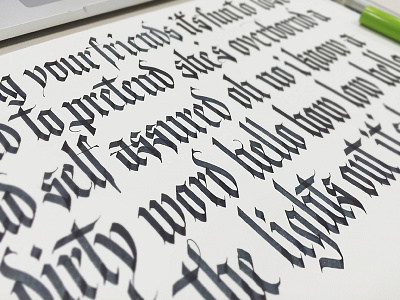 g your friends it's fun to
d to pretend she's overboard a
nd self assured oh no i know a
dirty word hello how low hello
the lights out it's